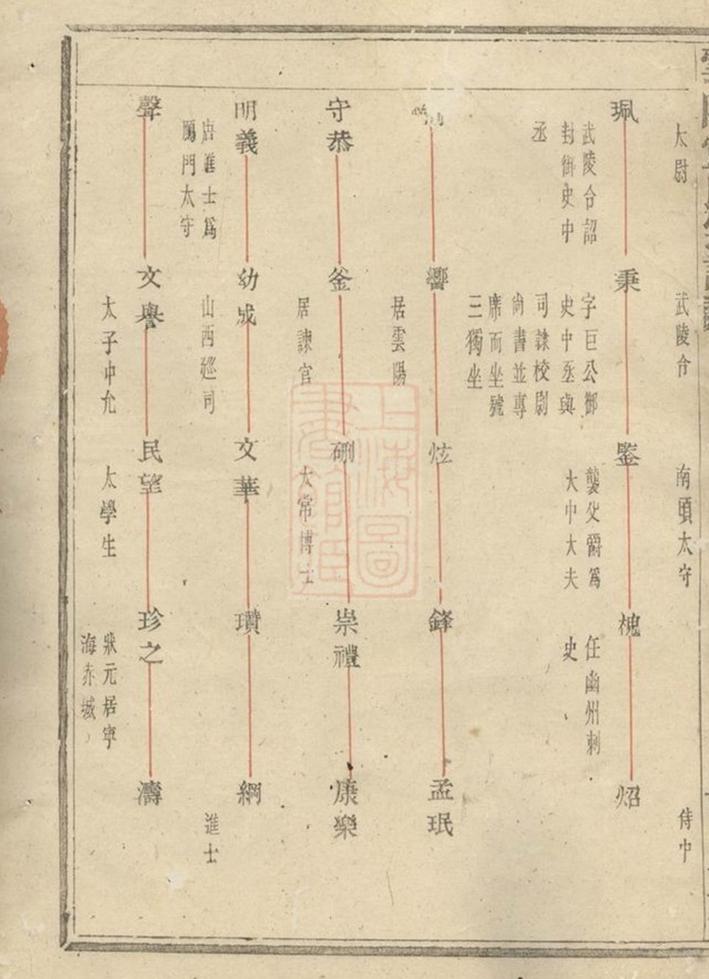 太尉
武陵令
南頭太守
侍中
珮
武陵令詔
封御史中
丞
秉
字巨公御
史中丞與
司隸校尉
尚書並專
席而坐號
三獨坐
鍳
襲父爵爲
大中大夫
槐
任幽州刺
史
炤
響
居雲陽
炫
鋒
孟珉
守恭
釜
居諫官
硎
太常博士
崇禮
康樂
明義
唐進士爲
鴈門太守
幼成
山西廵司
文華
瓚
綱
進士
聲
文譽
太子中允
民望
太學生
珍之
狀元居寧
海赤城
濤
上海圖書館藏